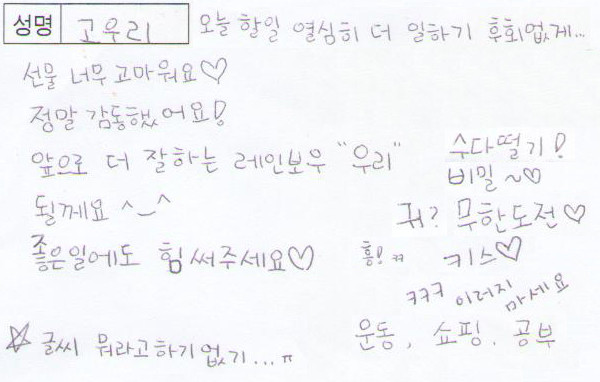 성명 고우리
오늘 할일 열심히 더 일하기 후회없게...
선물 너무 고마워요♡
정말 감동했어요!
앞으로 더 잘하는 레인보우 "우리"
될께요 ^_^
좋은일에도 힘써주세요♡
수다떨기!
비밀~♡
뭐? 무한도전♡
흥!ㅋ 키스♡
ㅋㅋㅋ 이러지 마세요
운동, 쇼핑. 공부
☆ 글씨 뭐라고하기없기...ㅠ